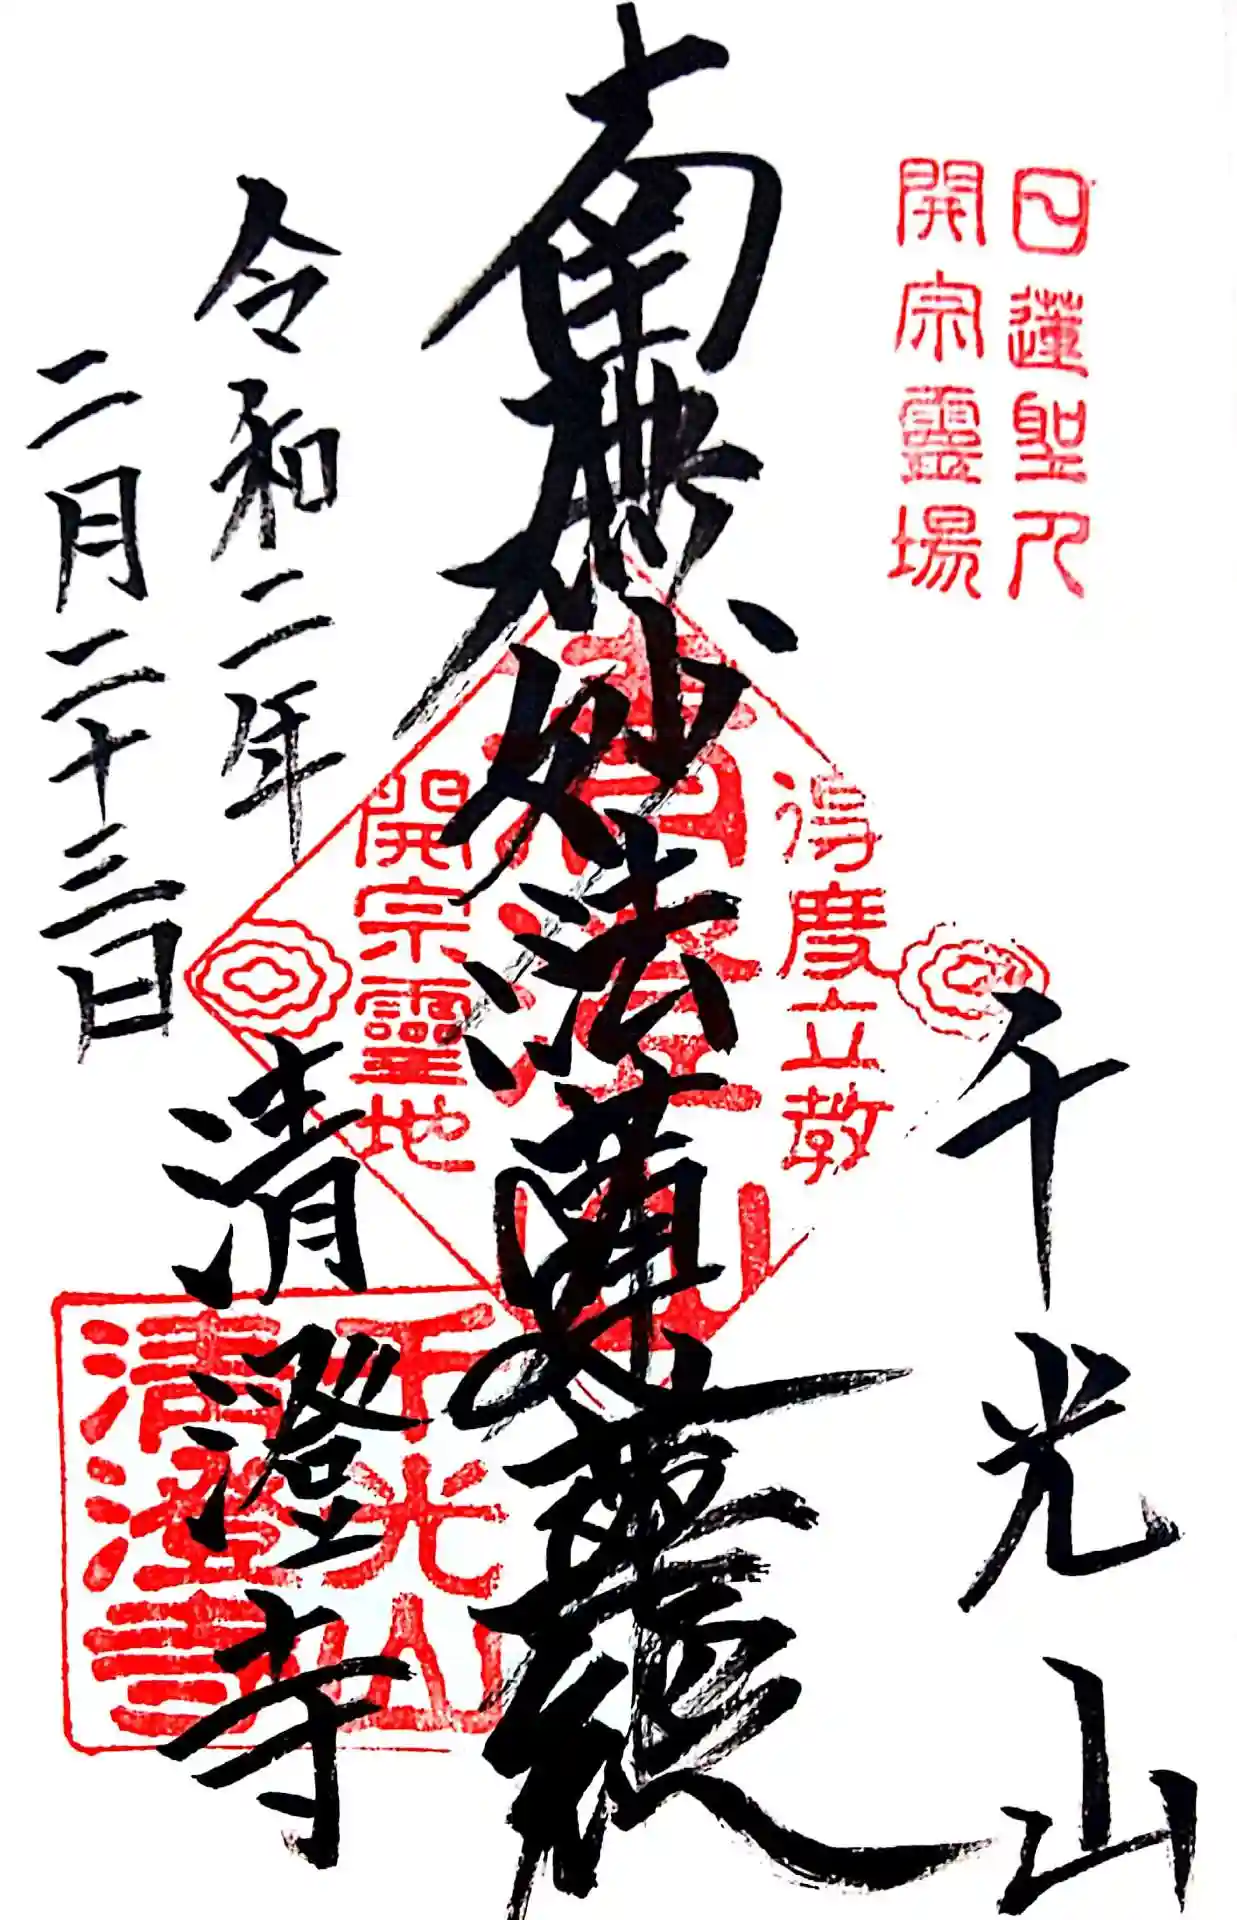 日蓮聖人
開宗靈場
千光山
南無妙法蓮華経
得度立教
開宗靈地
令和二年
二月二十三日
清澄寺
千光山
清澄寺